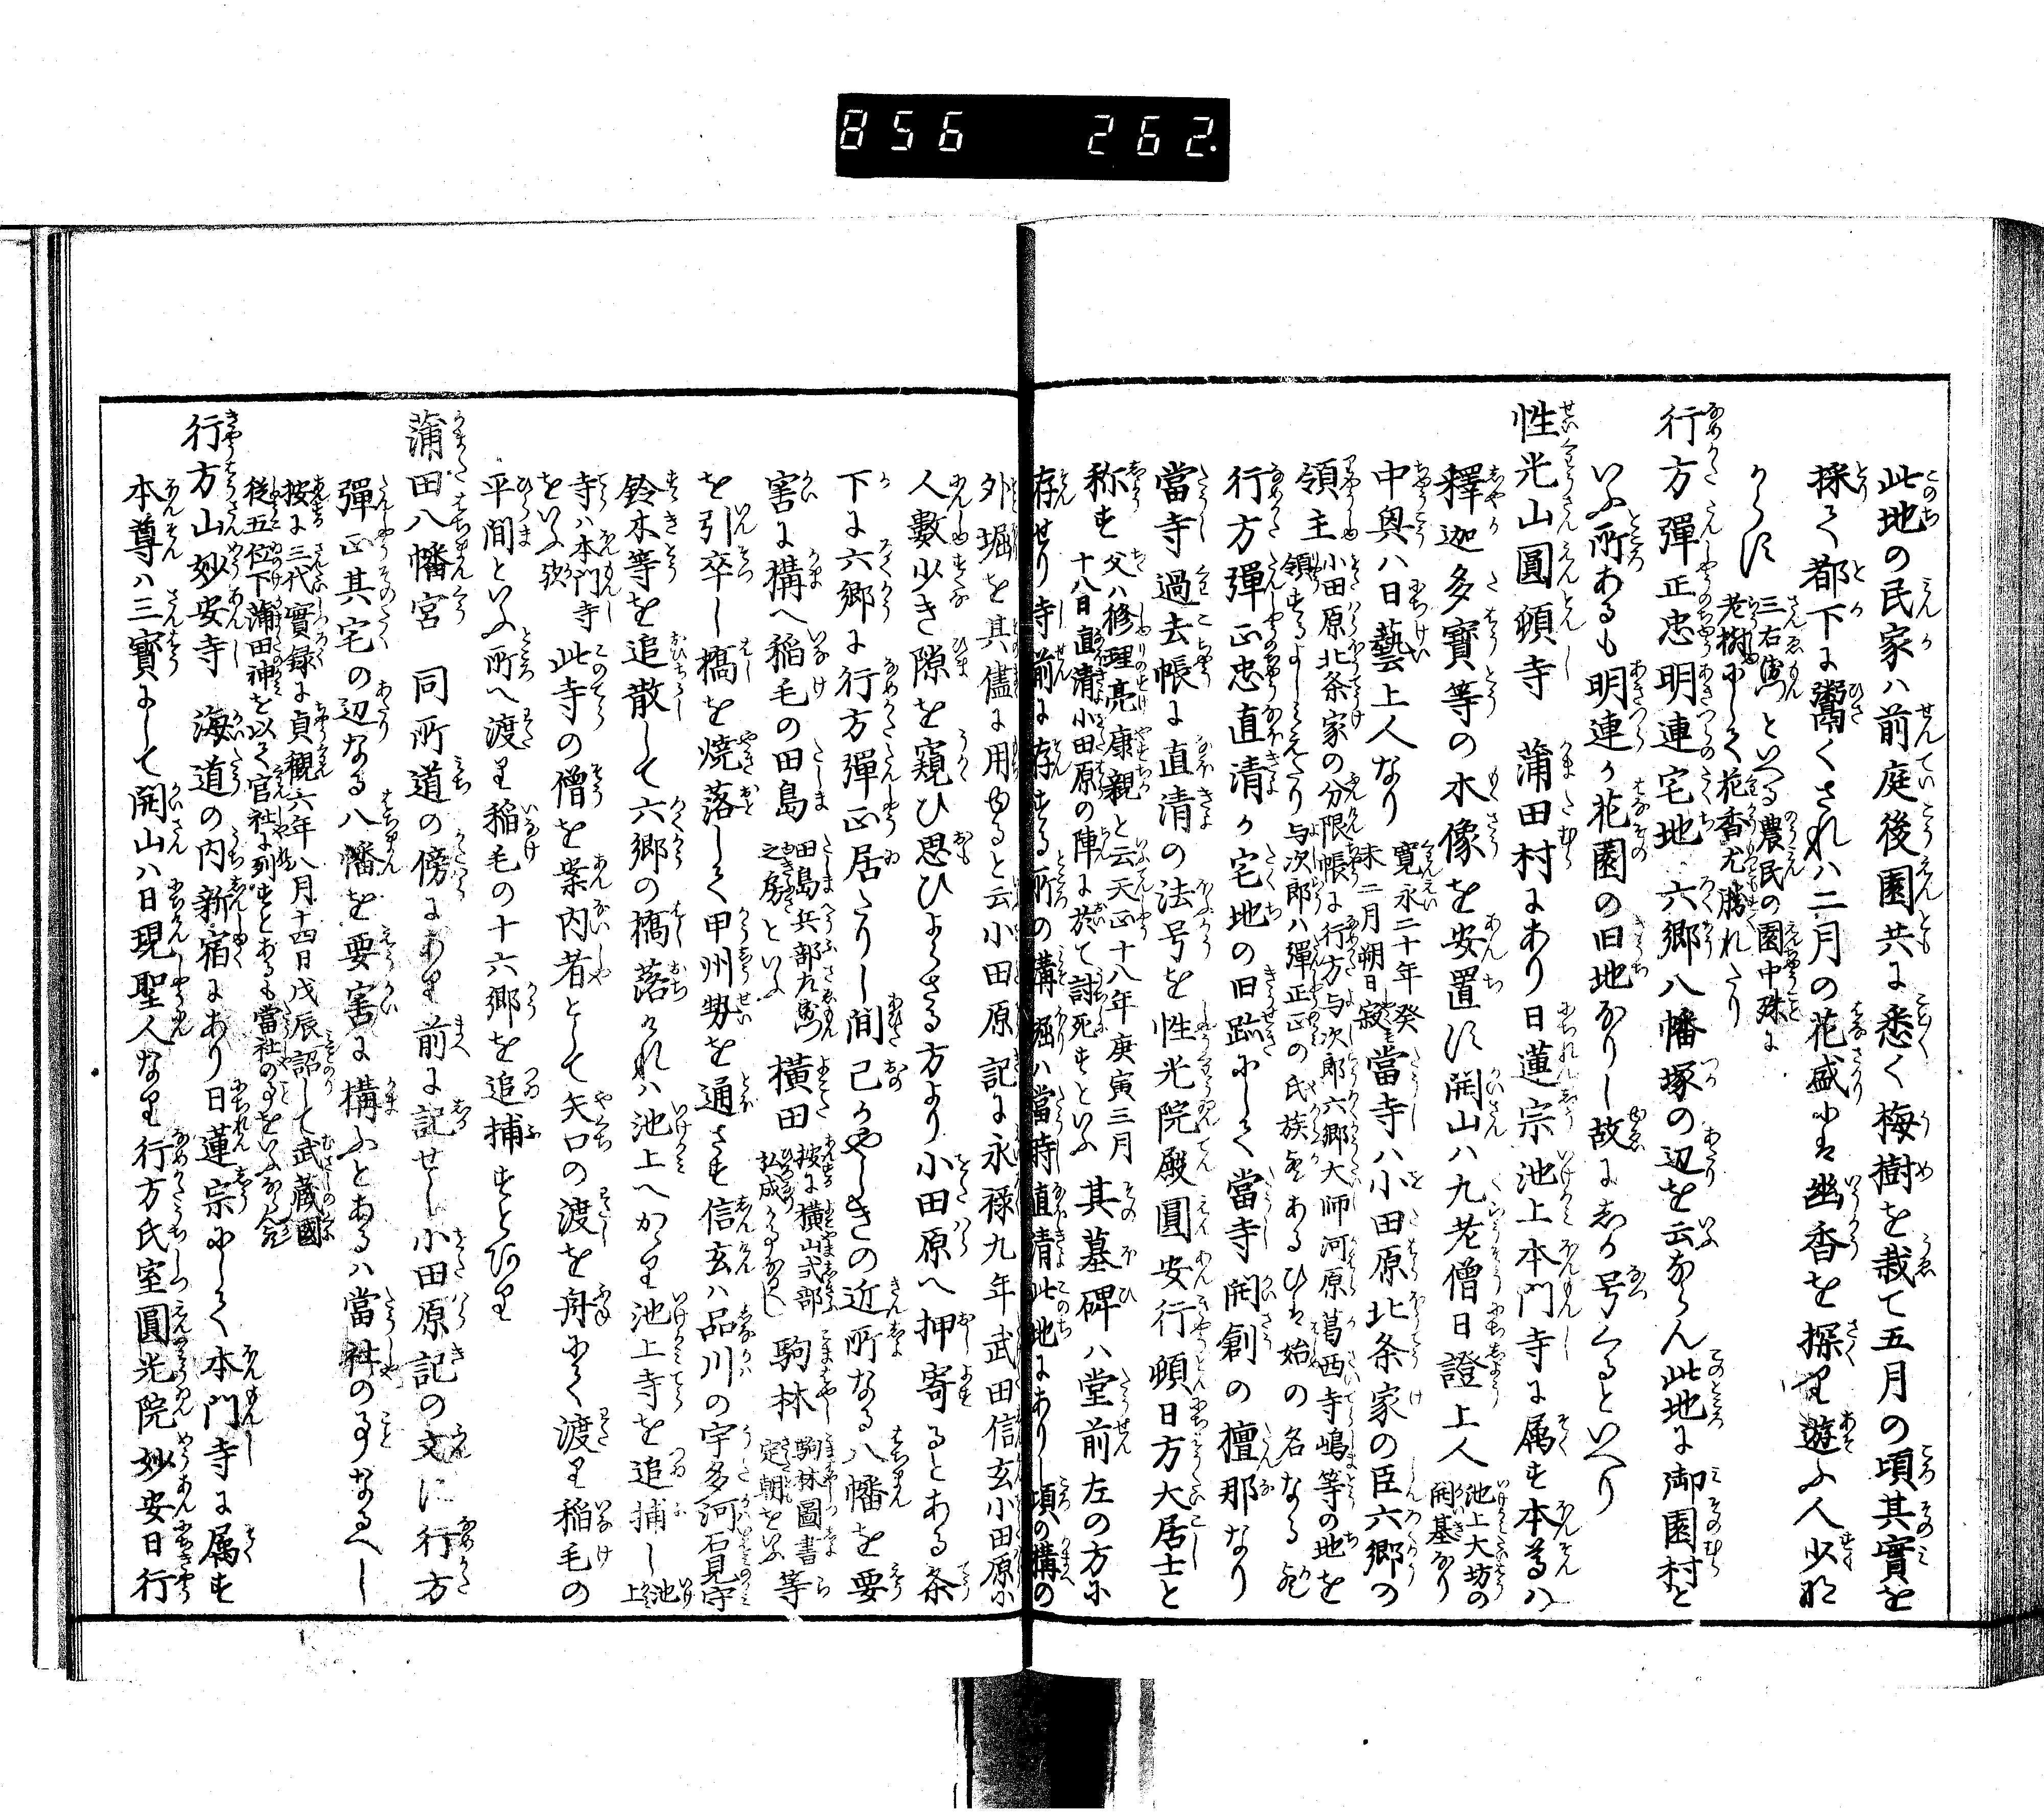 856 262.
此地の民家ハ前庭後園共に悉く梅樹を栽て五月の頃其實を
採て都下に鬻くされハ二月の花盛にハ幽香を探り遊ふ人少な
からす 三右衛門といへる農民の園中殊に
老樹にして花香尤勝れたり
行方彈正忠明連宅地 六郷八幡塚の辺を云ならん此地に御園村と
いふ所あるも明連か花園の旧地なりし故にしか号くるといへり
性光山圓頓寺 蒲田村にあり日蓮宗池上本門寺に属す本尊ハ
釋迦多寶等の木像を安置す開山ハ九老僧日證上人 池上大坊の
開基なり
中興ハ日藝上人なり 寛永二十年癸
未二月朔日寂 當寺ハ小田原北条家の臣六郷の
領主 小田原北条家の分限帳に行方与次郎六郷大師河原葛西寺嶋等の地を
領するよしみえたり与次郎ハ彈正の氏族なるかあるひハ始の名なる歟
行方彈正忠直清か宅地の旧趾にして當寺開創の檀那なり
當寺過去帳に直清の法号を性光院殿圓安行頓日方大居士と
称す 父ハ修理亮康親と云天正十八年庚寅三月
十八日直清小田原の陣に於て討死すといふ 其墓碑ハ堂前左の方に
存せり寺前に存する所の溝堀ハ當時直清此地にありし頃の構の
外堀を其儘に用ゆると云小田原記に永禄九年武田信玄小田原に
人數少き隙を窺ひ思ひよらさる方より小田原へ押寄るとある条
下に六郷に行方彈正居たりし間己かやしきの近所なる八幡を要
害に構へ稲毛の田島 田島兵部左衛門
之房といふ 横田 按に横山式部
弘成なるへし 駒林 駒林圖書
定朝をいふ 等
を引卒し橋を燒落して甲州勢を通さす信玄ハ品川の宇多河石見守
鈴木等を追散して六郷の橋落けれハ池上へかゝり池上寺を追捕し 池上
寺ハ本門寺
をいふ歟 此寺の僧を案内者として矢口の渡を舟にて渡り稲毛の
平間といふ所へ渡り稲毛の十六郷を追捕すとあり
蒲田八幡宮 同所道の傍にあり前に記せし小田原記の文に行方
彈正其宅の辺なる八幡を要害に構ふとあるハ當社の事なるへし
按に三代實録に貞觀六年八月十四日戊辰詔して武藏國
從五位下蒲田神を以て官社に列すとあるも當社の事をいふならん歟
行方山妙安寺 海道の内新宿にあり日蓮宗にして本門寺に属す
本尊ハ三寳にして開山ハ日現聖人なり行方氏室圓光院妙安日行